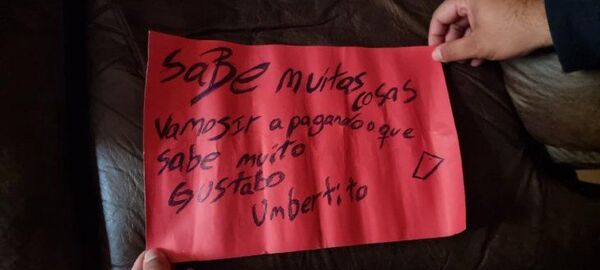 SaBe muitas
cosas
Vamosir a pagando o que
sabe muito
Gustabo
Umbertito